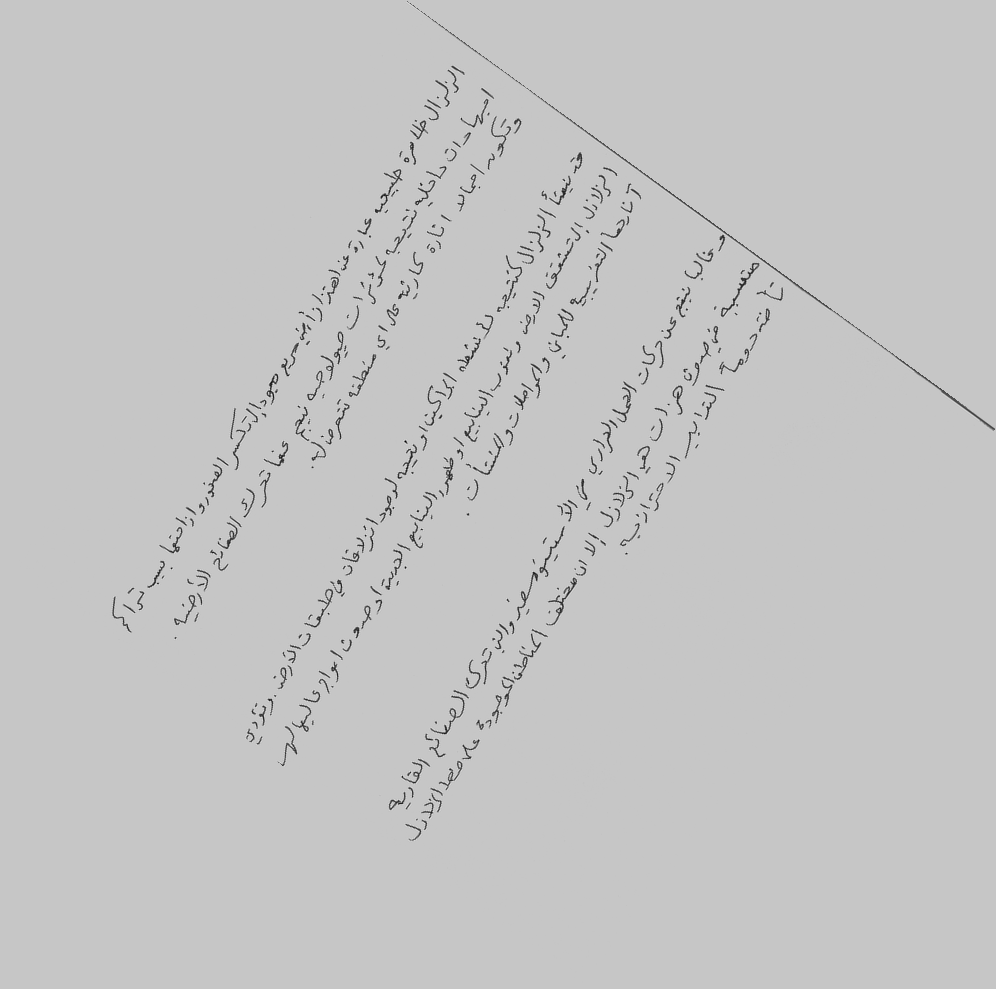 الزلزال ظاهرة طبيعيه عبارة عن اهتزاز أرضي سريع يعود إلى تكسر الصخور وازاحتها بسبب تراكم
اجهادات داخليه نتيجه لمؤثرات جيولوجيه ينجم عنها تحرك الصفائح الأرضيه .
وتكون اجمالا اثارة كارثيه على اي منطقه تتعرض له .
قد ينشأ الزلزال كنتيجه لأنشطه البراكين او نتيجه لوجود انزلاقات في طبقات الارض . وتؤدي
الزلازل إلى تشقق الارض ونضوب الينابيع او ظهور الينابيع الجديدة او حدوث امواج عاليه
آثارها التخريبية للمباني والمواصلات والمنشأت .
وغالبا ينتج عن حركات الحمل الحراري في الأستينوسفير والتي تحرك الصفائح القارية
متسببة في حدوث هزات هي الزلازل إلا ان مختلف المناطق الموجودة على صعد الزلازل
خاضعه دوما التدابير الاحترازيه .